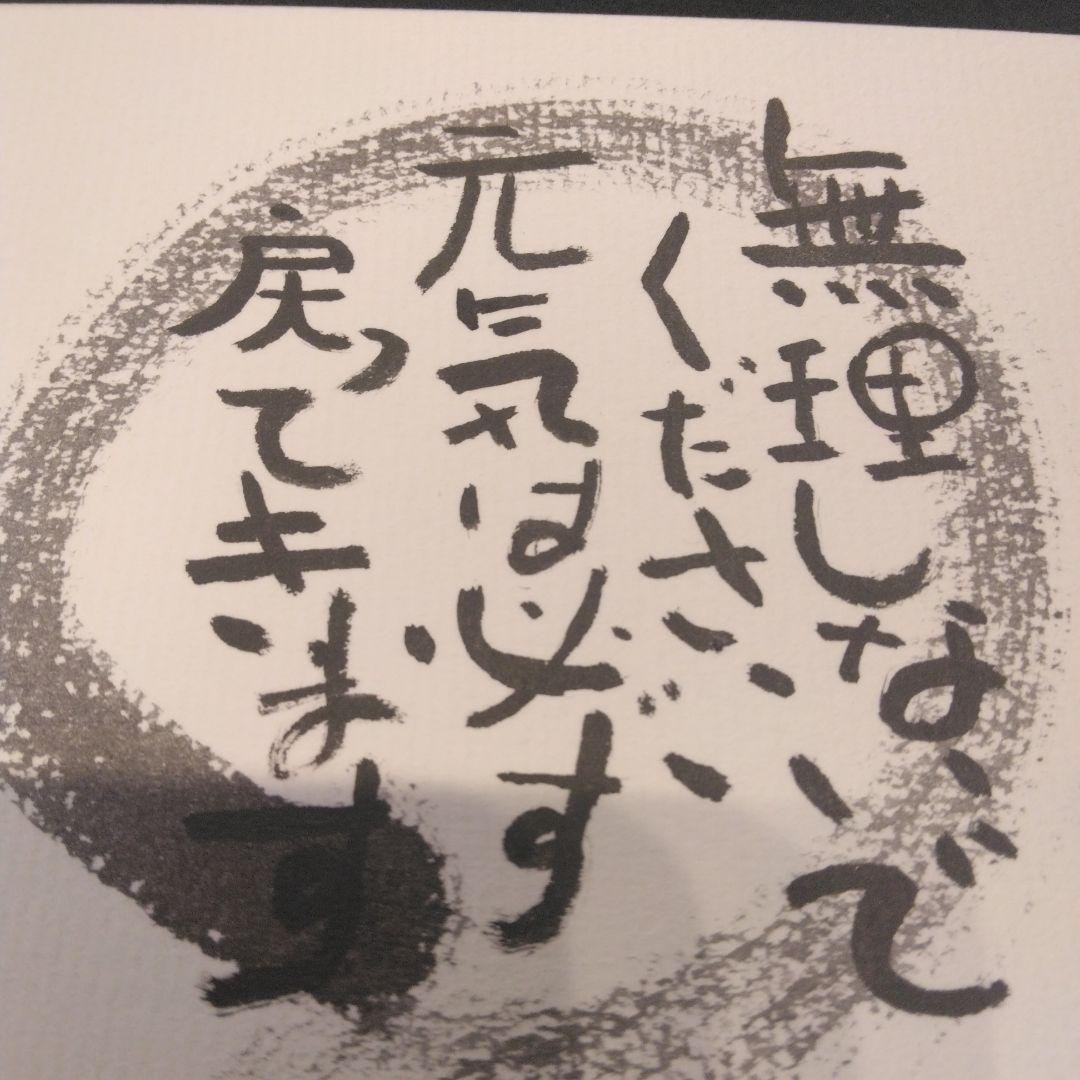 無理しないで
ください
元気は必ず
戻ってきます